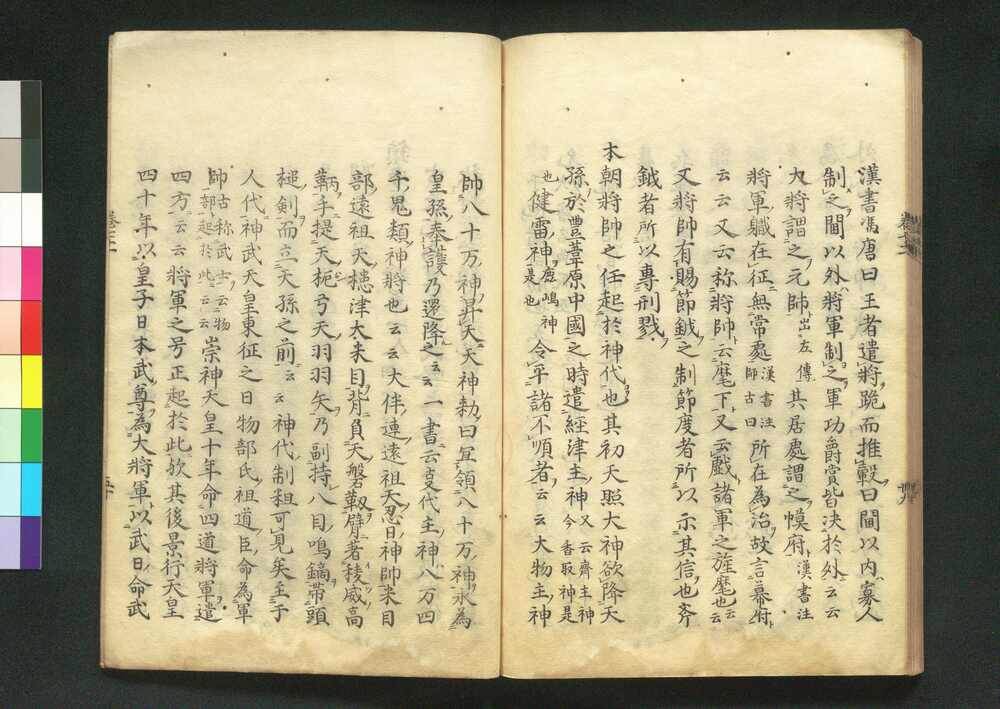 漢書馮唐曰王者遣將跪而推轂曰閫以内寡人
制之閫以外將軍制之軍功爵賞皆決於外云云
大將謂之元帥出左傳其居處謂之幕府漢書注
將軍軄在征無常處漢書注師古曰所在為治故言幕府
云云又云称將帥云麾下又云戲諸軍之旌麾也云云
又將帥有賜節鉞之制節度者所以示其信也斧
鉞者所以專刑戮
本朝將帥之任起於神代也其初天照大神欲降天
孫於豊葦原中國之時遣經津主神又云齊主神今香取神是
也健雷神鹿嶋神是也令平諸不順者云云大物主神
帥八十万神昇天天神勅曰冝領八十万神永為
皇孫奉護乃還降之云云一書云事代主神八万四
千鬼類神將也云云大伴連遠祖天忍日神帥来目
部遠祖天槵津大来目背負天磐靫臂著稜威高
鞆手提天梔弓天羽羽矢乃副持八目鳴鏑帶頭
槌剣而立天孫之前云云神代制粗可見矣至于
人代神武天皇東征之日物部氏祖道臣命為軍
帥古称武士云物部起於此云云崇神天皇十年命四道將軍遣
四方云云將軍之号正起於此欤其後景行天皇
四十年以皇子日本武尊為大將軍以武日命武